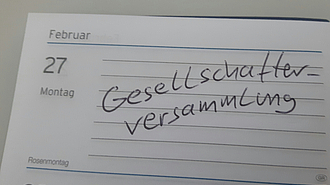 Februar
27
Montag
Gesellschafter-
versammlung
Rosenmontag